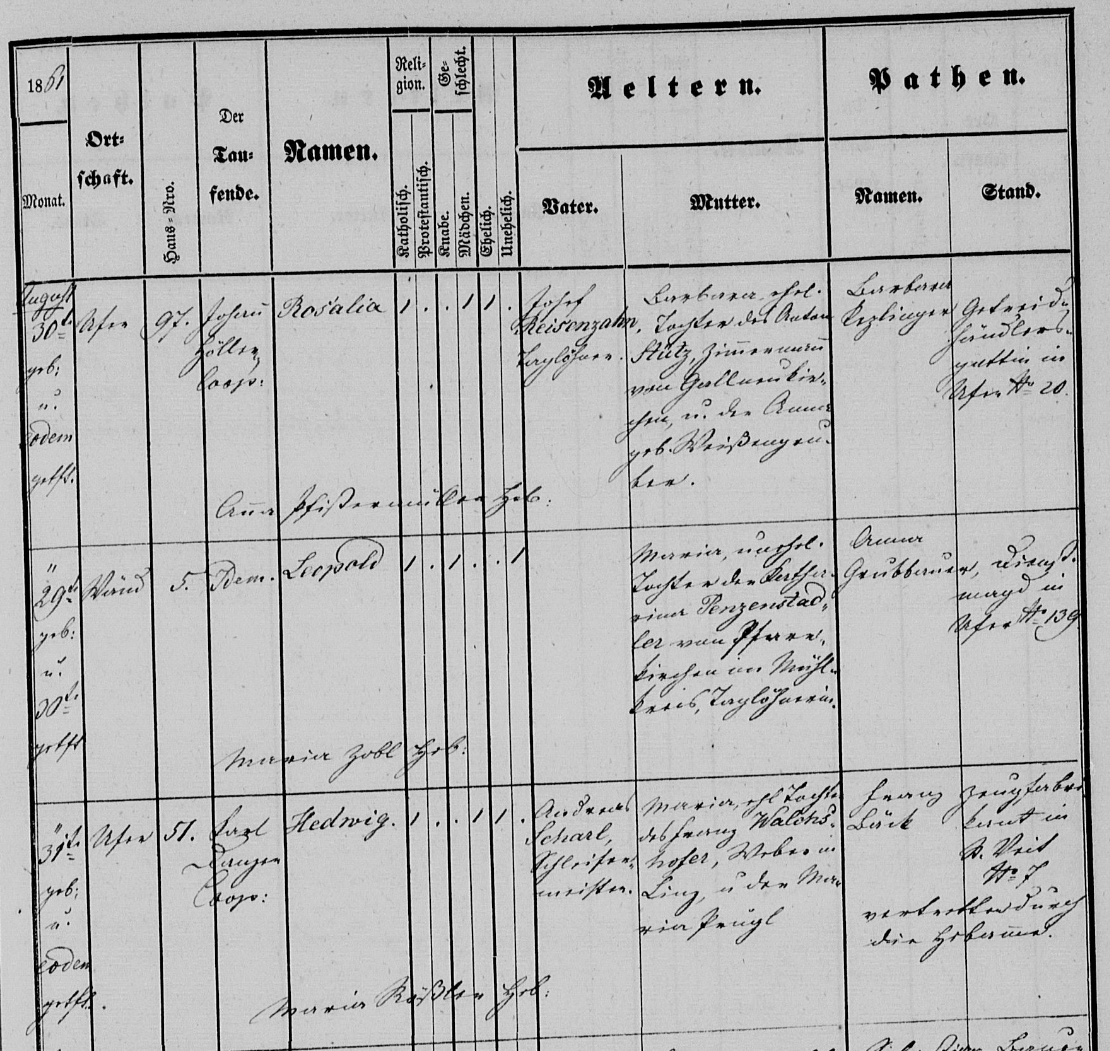 1861
Monat.
Ort-
schaft.
Haus-Nro.
Der
Tau-
fende.
Namen.
Reli-
gion.
Katholisch.
Protestantisch.
Ge-
schlecht.
Knabe.
Mädchen.
Ehelich.
Unehelich.
Aeltern.
Vater.
Mutter.
Pathen.
Namen.
Stand.
August
30t.
geb:
u.
eodem
getft.
Ufer
97.
Johann
Höller
Coop:
Rosalia
1 . . 1 1 .
Josef
Reisenzahn,
Taglöhner.
Barbara, ehel.
Tochter des Anton
Stütz, Zimmermann
von Gallneukir-
chen, u. der Anna
geb. Weißengru-
ber.
Barbara
Getreid-
händlers-
gattin in
Ufer No 20.
Anna Pfistermüller Heb:
"
29t.
geb:
u.
30t.
getft
5.
Idem.
Leopold
1 . 1 . . 1
Maria, unehel.
Tochter der Katha-
rina Penzenstad-
ler von Pfarr-
kirchen im Mühl-
kreis, Taglöhnerin.
Anna
Grubbauer,
Dienst-
magd in
Ufer No 139
Maria Zobl Heb:
"
31t.
geb:
u.
eodem
getft.
Ufer
51.
Karl
Coop:
Hedwig.
1 . . 1 1 .
Andreas
Scharl,
Schleifer-
meister.
Maria, ehl Tochter
des Franz Walchs-
hofer, Weber in
Linz, u der Ma-
ria Prügl
Franz
Bäck
Zeugfabri-
kant in
St. Veit
No 7
vertretten durch
die Hebamme.
Maria Rößler Heb: